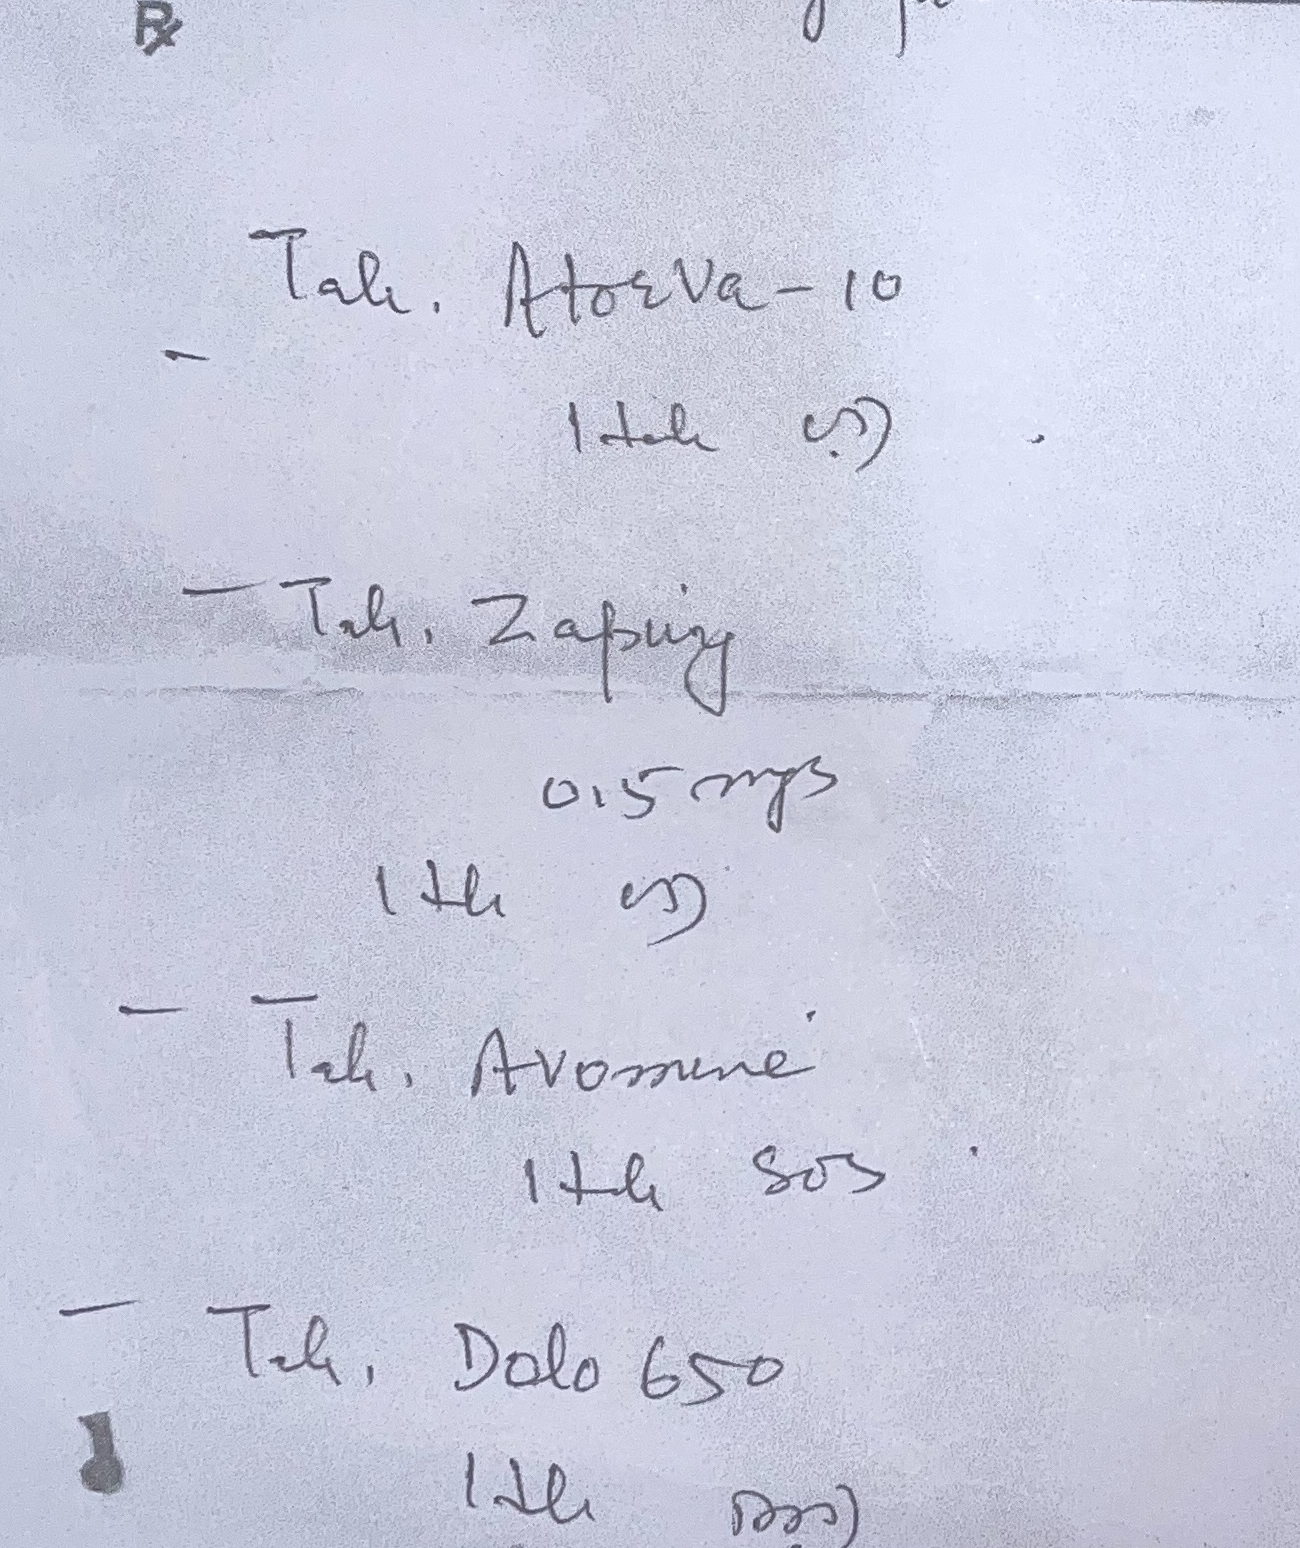 Rx
Tab. Atorva-10
1 tab
- Tab.
0.5 mgs
1 tab
- Tab. Avomine
1 tab SOS
- Tab. Dolo 650
1 tab